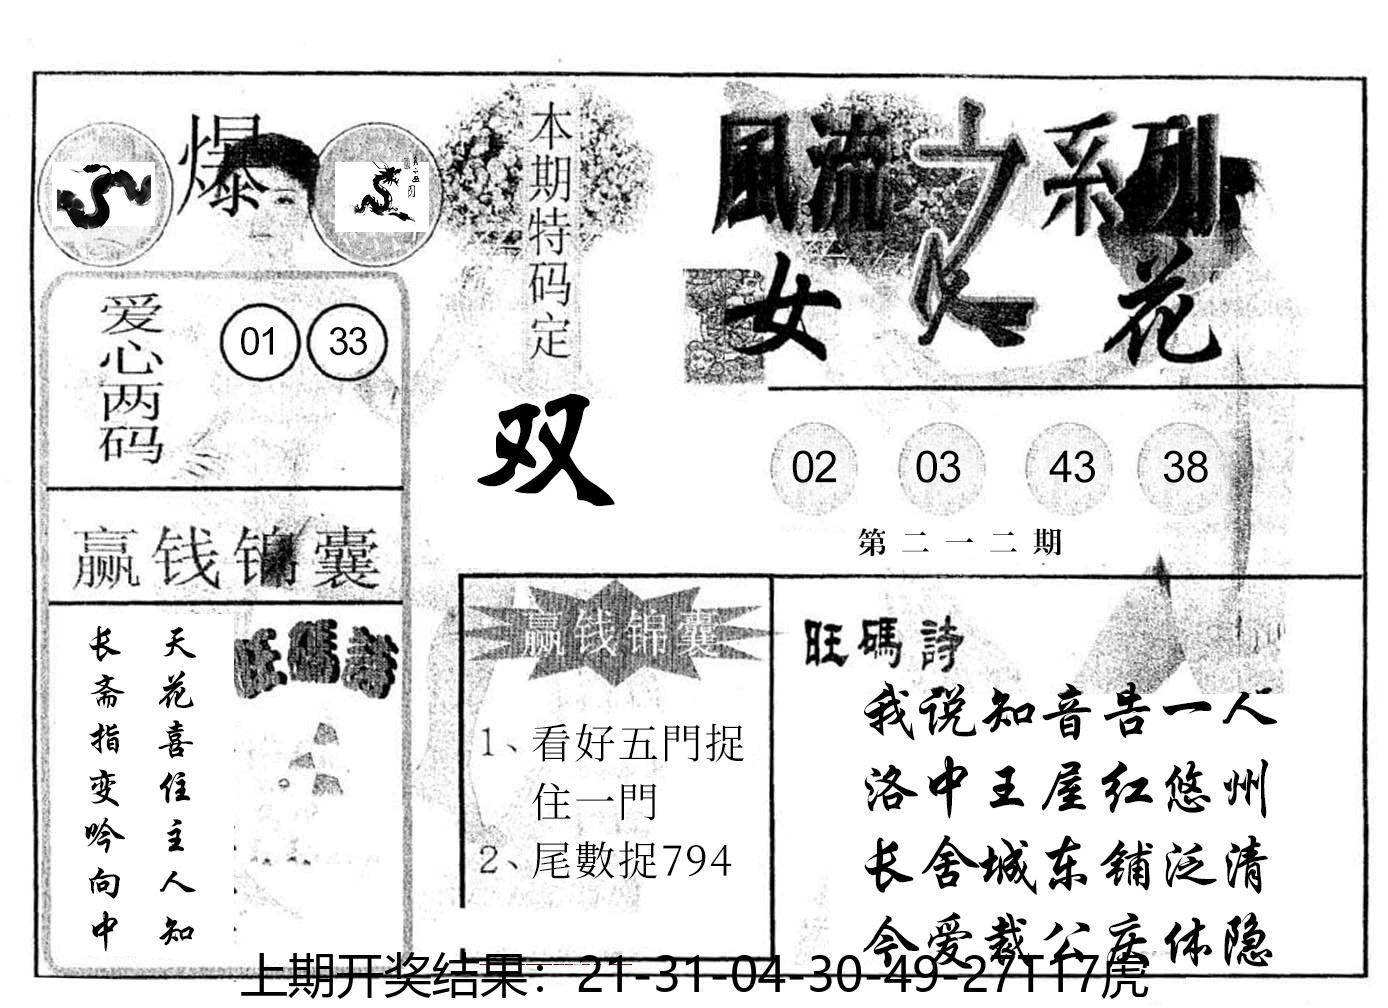 爆
爱心两码
01 33
赢钱锦囊
天花喜住主人知
长斋指变吟向中
旺碼詩
本期特码定
双
風流之系列
女人花
02 03 43 38
第二一二期
赢钱锦囊
1、看好五門捉
住一門
2、尾數捉794
旺碼詩
我说知音告一人
洛中王屋红悠州
长舍城东铺泛清
今爱裁公庆体隐
上期开奖结果：21-31-04-30-49-27T17虎